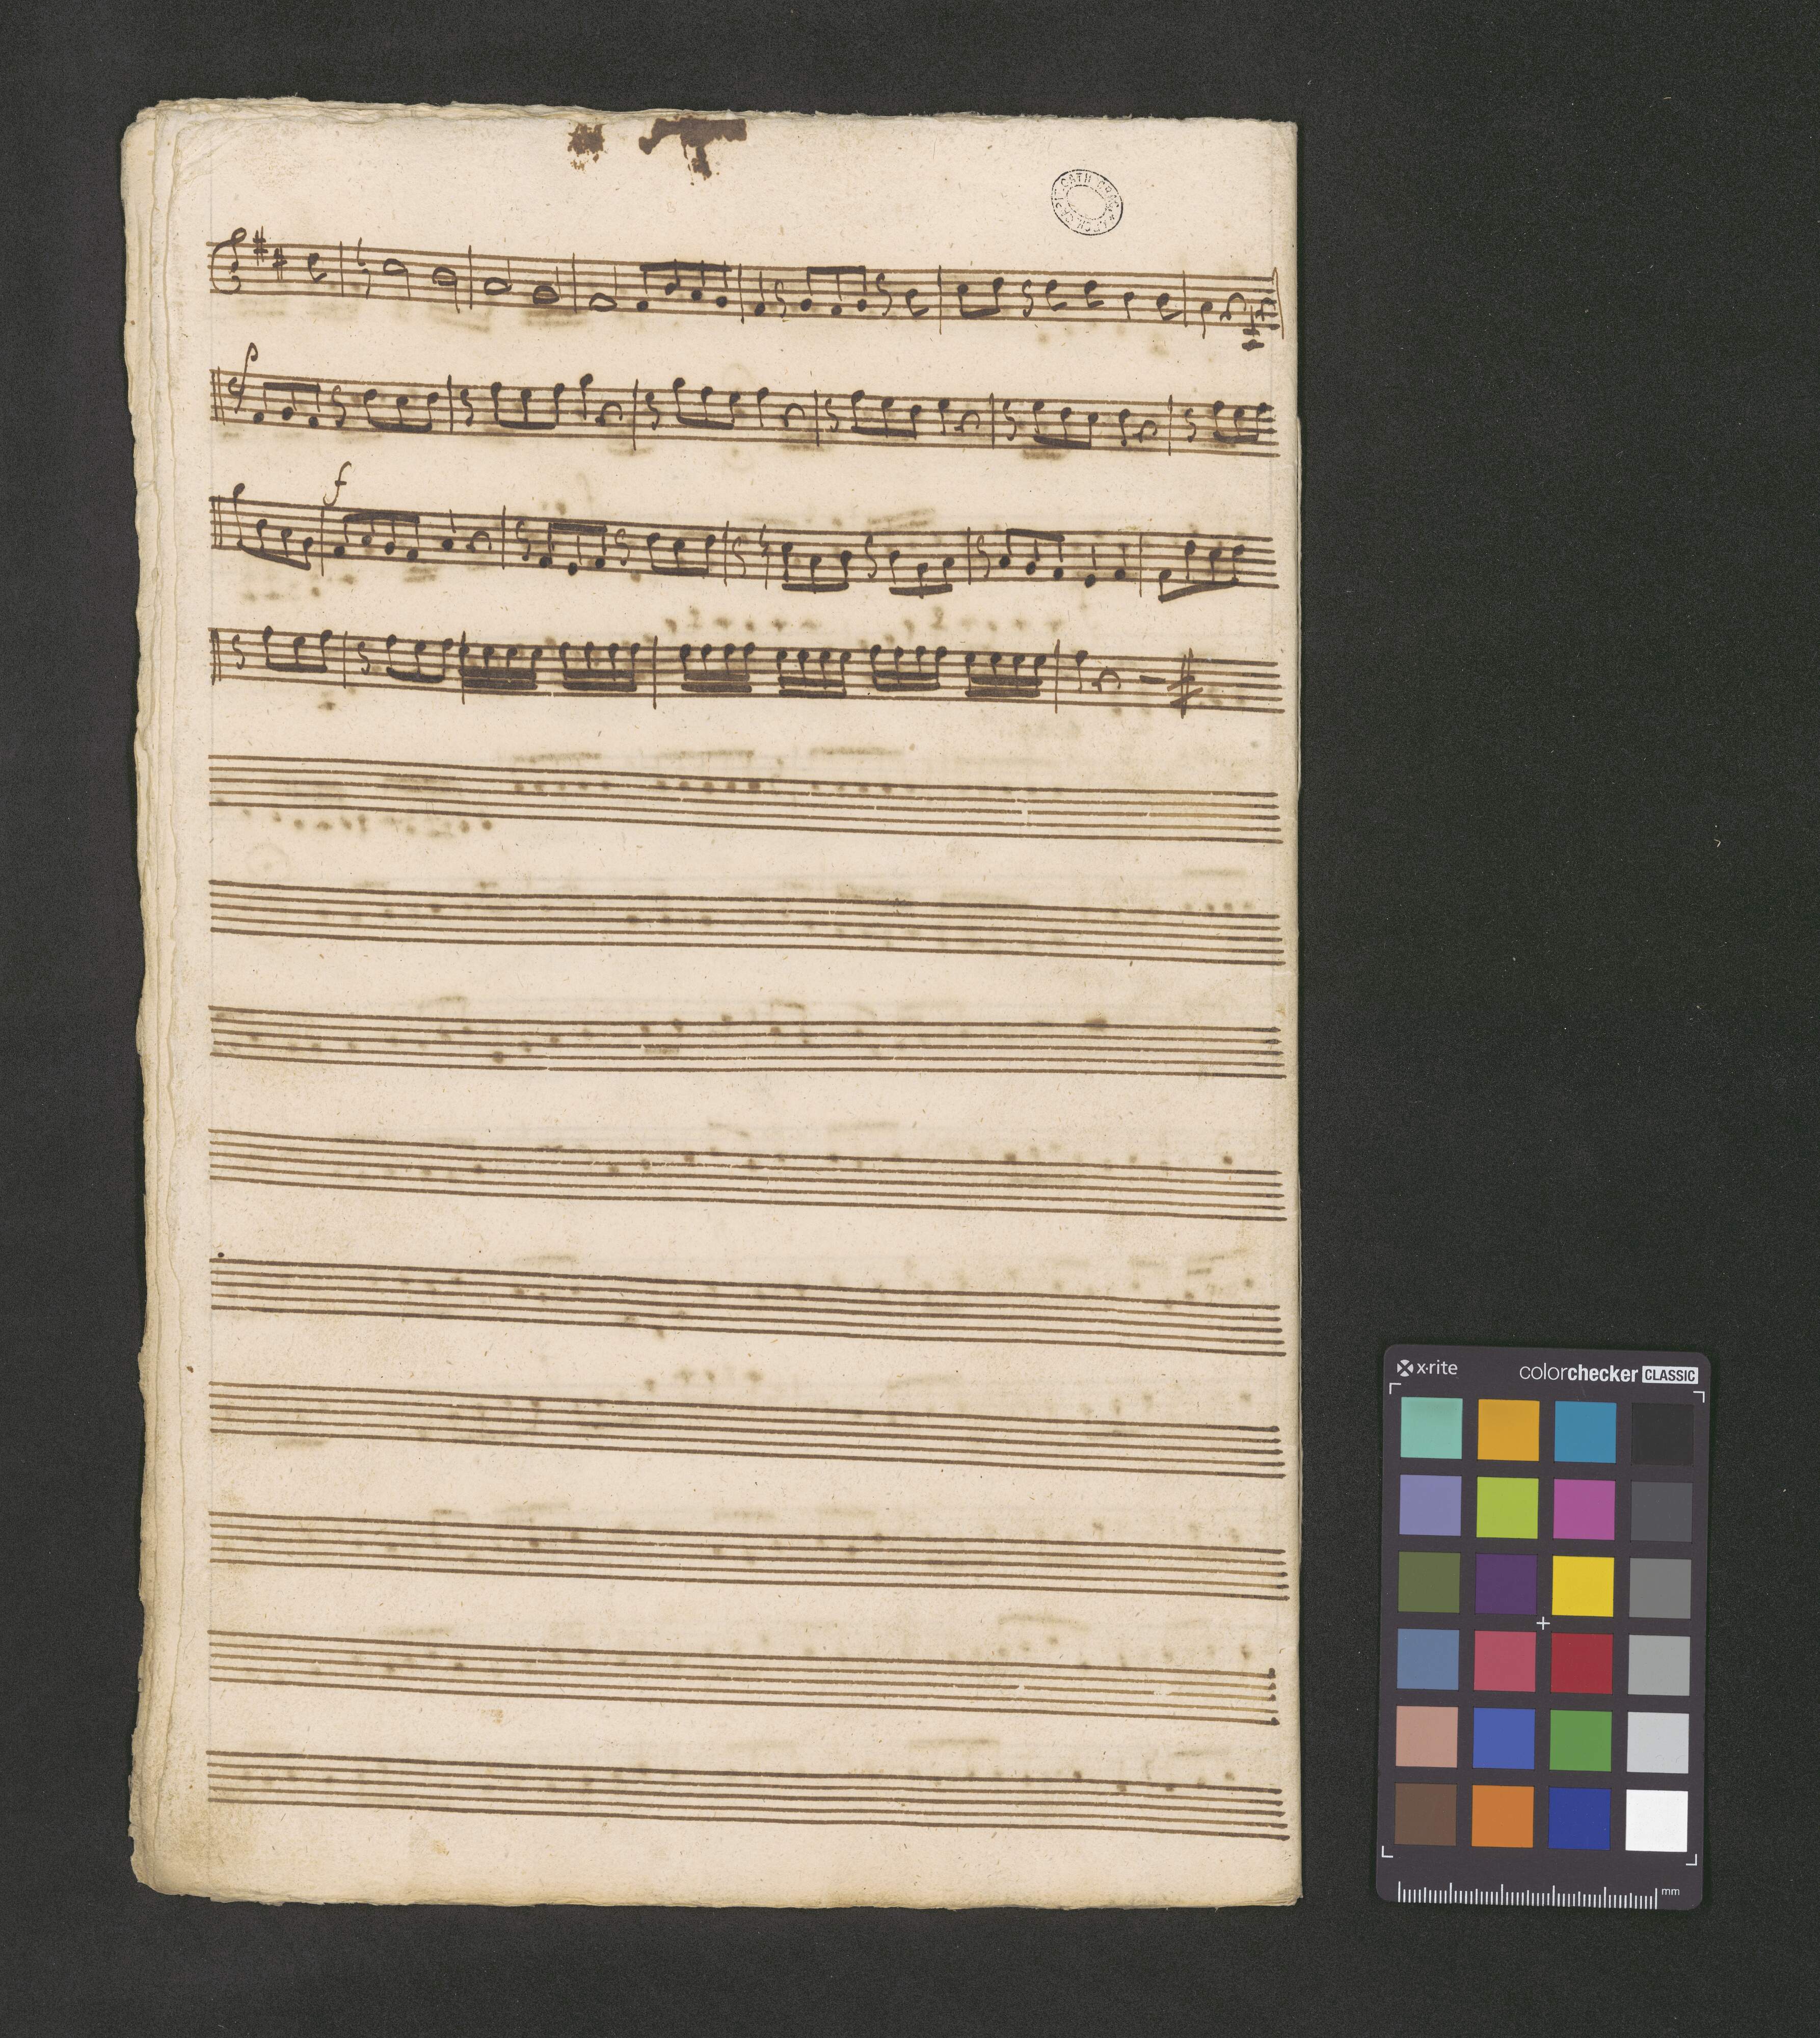 f
f
x·rite
colorchecker CLASSIC
mm